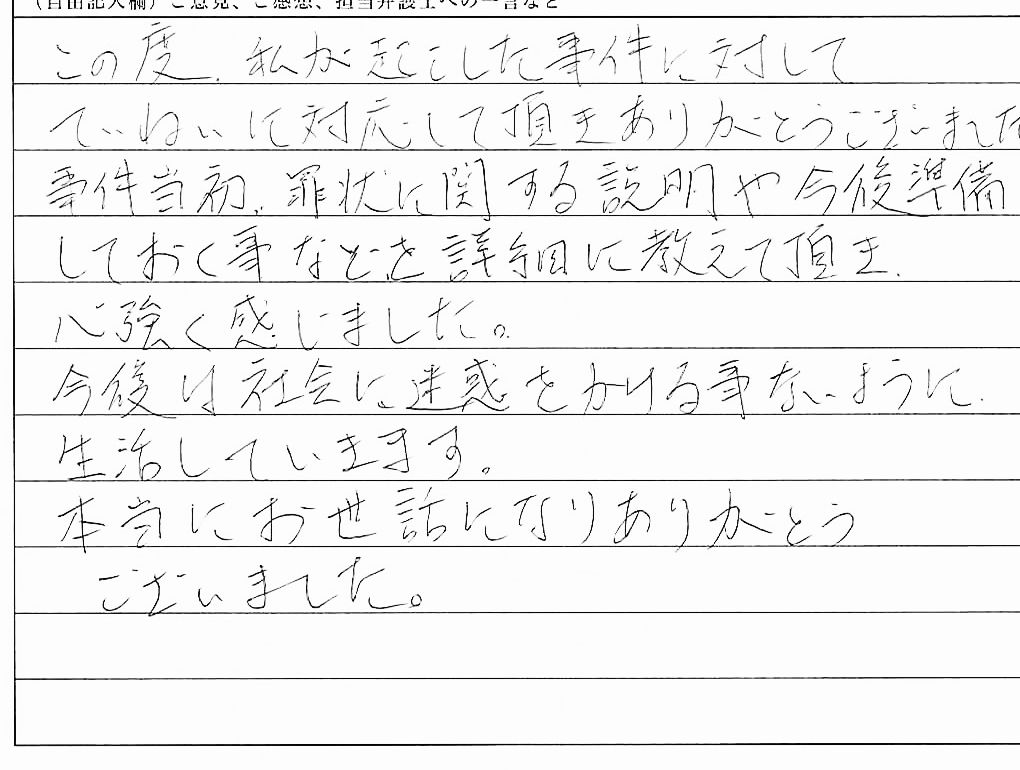 （自由記入欄）ご意見、ご感想、担当弁護士への一言など
この度、私が起こした事件に対して
ていねいに対応して頂きありがとうございました
事件当初、罪状に関する説明や今後準備
しておく事などを詳細に教えて頂き、
心強く感じました。
今後は社会に迷惑をかける事ないように、
生活していきます。
本当にお世話になりありがとう
ございました。